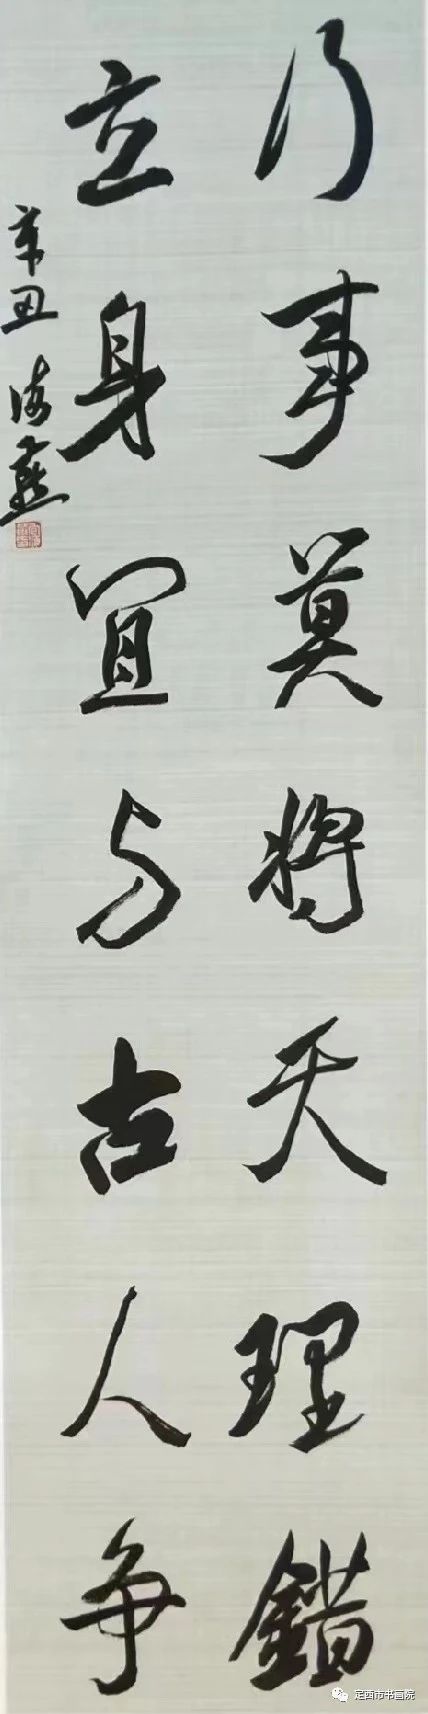 行事莫将天理錯
立身宜与古人争
辛丑 海燕
定西市书画院